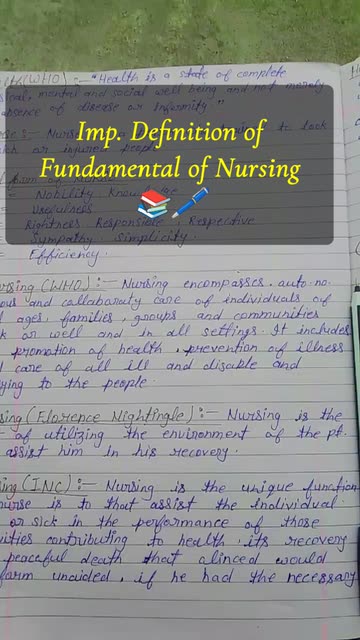 (WHO) :- "Health is a state of complete
mental and social well being and not merely
absence of disease or infirmity."
Imp. Definition of
Fundamental of Nursing
Nurse
to look
or injured people
Nobility Knowledge
Usefulness
Rightness Responsible, Respective
Sympathy Simplicity
Efficiency.
(WHO) :- Nursing encompasses auto-no.
and collabaraty care of individuals of
ages, families, groups and communities
or well and in all settings. It includes
promotion of health, prevention of illness
care of all ill and disable and
to the people.
(Florence Nightingle) :- Nursing is the
of utilizing the environment of the pt.
assist him in his recovery.
(INC) :- Nursing is the unique function
nurse is to that assist the individual
or sick in the performance of those
contributing to health, its recovery
peaceful death that alinced would
unaided, if he had the necessary